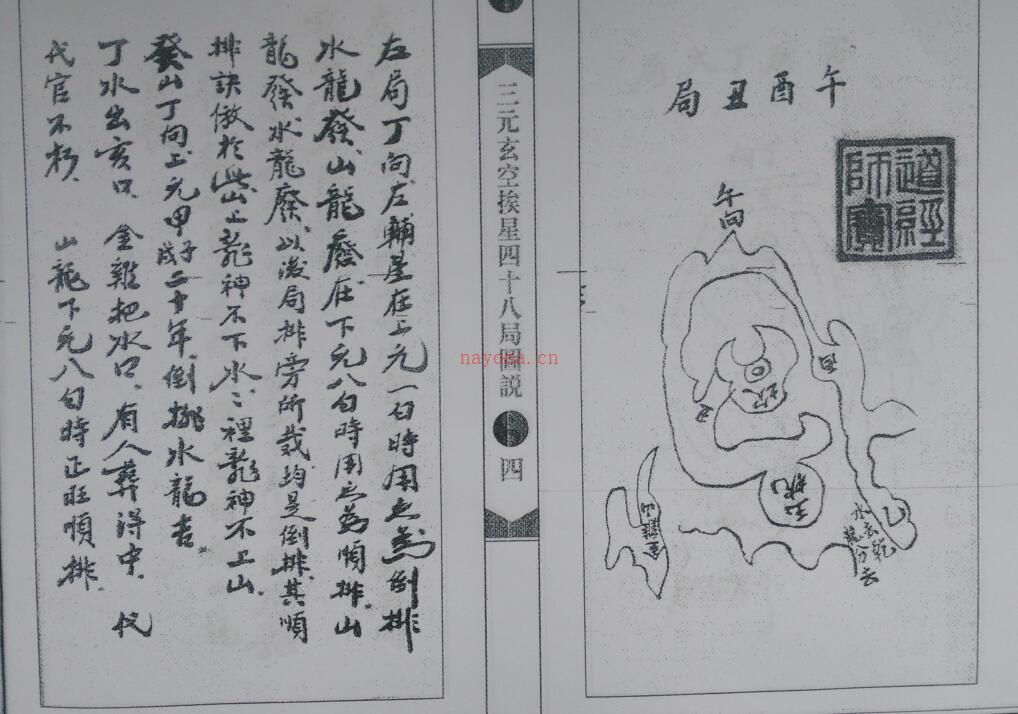 午酉丑局
道經師寶
午向
水去乾
三元玄空挨星四十八局圖説
四
左局丁向左輔星在上元一白時用之為倒排
水龍發山龍廢在下元八白時用之為順排山
龍發水龍廢以後局排旁所載均是倒排其順
排訣倣於此山上龍神不下水水裡龍神不上山
癸山丁向上元甲子戌二十年倒排水龍書
丁水出亥口金雞把水口有人葬得中代
代官不朽
山龍下元八白時正旺順排
nayona.cn